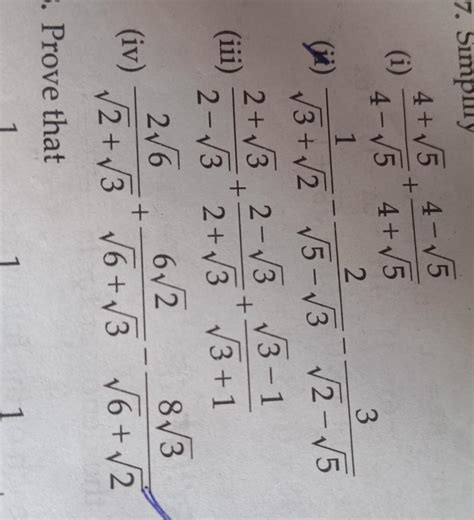 7. Simplify
(i) \frac{4+\sqrt{5}}{4-\sqrt{5}} + \frac{4-\sqrt{5}}{4+\sqrt{5}}
(ii) \frac{1}{\sqrt{3}+\sqrt{2}} - \frac{2}{\sqrt{5}-\sqrt{3}} - \frac{3}{\sqrt{2}-\sqrt{5}}
(iii) \frac{2+\sqrt{3}}{2-\sqrt{3}} + \frac{2-\sqrt{3}}{2+\sqrt{3}} + \frac{\sqrt{3}-1}{\sqrt{3}+1}
(iv) \frac{2\sqrt{6}}{\sqrt{2}+\sqrt{3}} + \frac{6\sqrt{2}}{\sqrt{6}+\sqrt{3}} - \frac{8\sqrt{3}}{\sqrt{6}+\sqrt{2}}
. Prove that
1 1 1